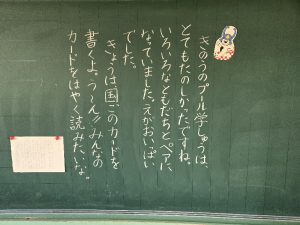 きのうのプール学しゅうは、
とてもたのしかったですね。
いろいろなともだちとペアに
なっていました。えがおいっぱい
でした。
きょうは国ごのカードを
書くよ。う～ん!!みんなの
カードをはやく読みたいな。